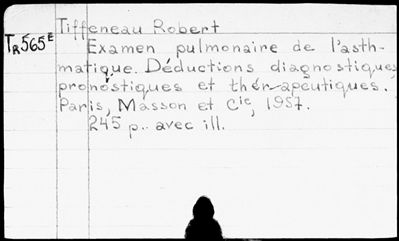 Tiffeneau Robert
TR565E Examen pulmonaire de l'asth-
matique. Déductions diagnostiques
pronostiques et thérapeutiques.
Paris, Masson et Cie, 1957.
245 p.. avec ill.